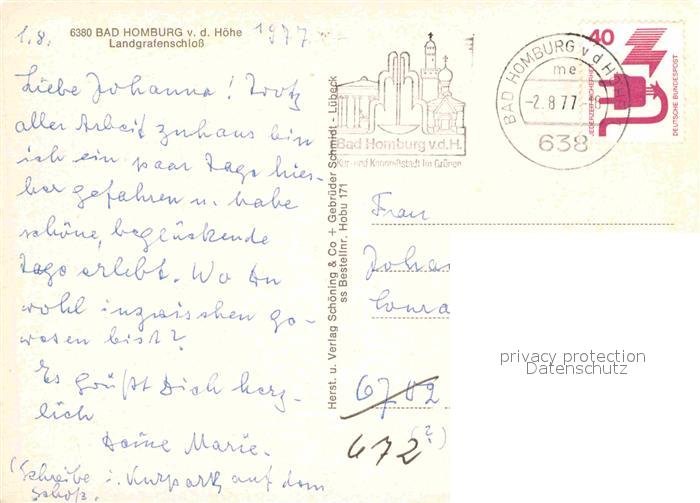 1.8. 1977
6380 BAD HOMBURG v. d. Höhe
Landgrafenschloß
Liebe Johanna! Trotz
aller Arbeit zuhaus bin
ich ein paar Tage hier-
her gefahren u. habe
schöne, beglückende
Tage erlebt. Wo Du
wohl inzwischen ge-
wesen bist?
Es grüßt Dich herz-
lich
Deine Marie.
(Schreibe i. Kurpark auf dem
Schoß.
Herst. u. Verlag Schöning & Co + Gebrüder Schmidt - Lübeck
ss Bestellnr. Hobu 171
Bad Homburg v.d.H.
Kur- und Kongreßstadt im Grünen
BAD HOMBURG v d HÖHE
me
-2.8.77.-18
638
40
JEDERZEIT SICHERHEIT
DEUTSCHE BUNDESPOST
Frau
Johan
Conra
6702
672 (?)
privacy protection
Datenschutz